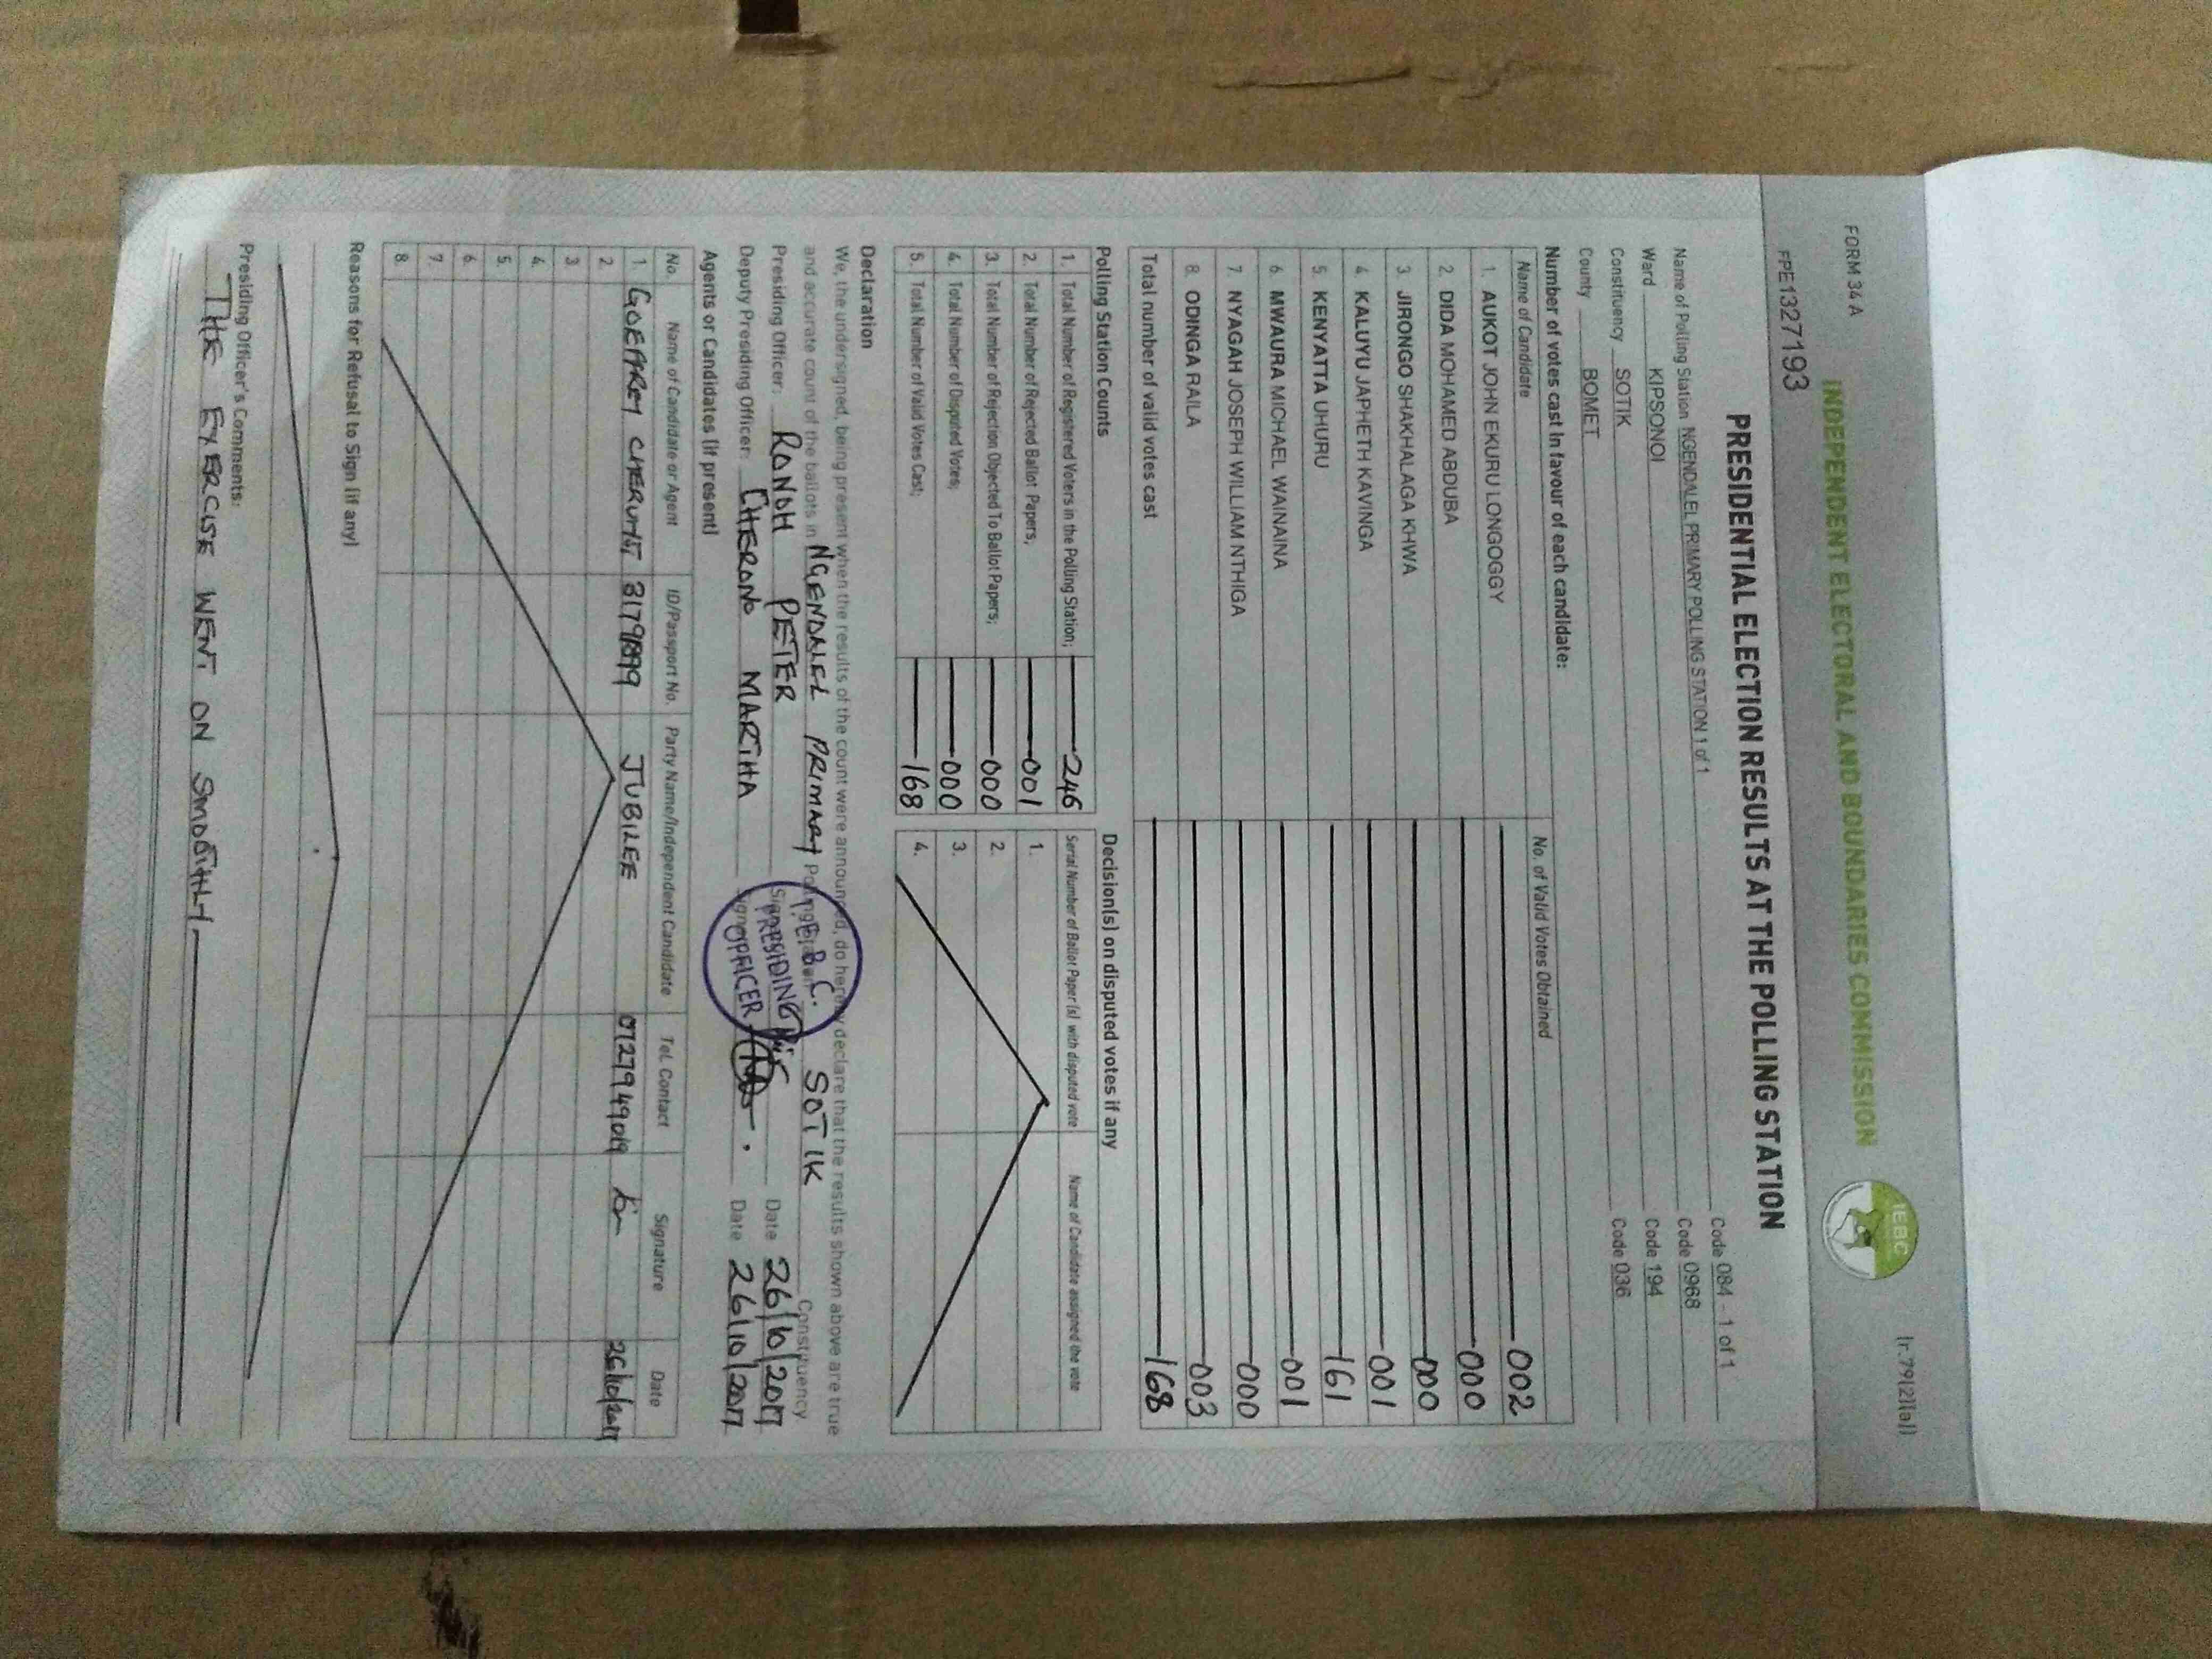 FORM 34 A
(r.79(2)(a))
INDEPENDENT ELECTORAL AND BOUNDARIES COMMISSION
IEBC
FPE1327193
PRESIDENTIAL ELECTION RESULTS AT THE POLLING STATION
Name of Polling Station NGENDALEL PRIMARY POLLING STATION 1 of 1 Code 084 - 1 of 1
Ward KIPSONOI Code 0968
Constituency SOTIK Code 194
County BOMET Code 036
Number of votes cast in favour of each candidate:
Name of Candidate No. of Valid Votes Obtained
1. AUKOT JOHN EKURU LONGOGGY 002
2. DIDA MOHAMED ABDUBA 000
3. JIRONGO SHAKHALAGA KHWA 000
4. KALUYU JAPHETH KAVINGA 001
5. KENYATTA UHURU 161
6. MWAURA MICHAEL WAINAINA 001
7. NYAGAH JOSEPH WILLIAM NTHIGA 000
8. ODINGA RAILA 003
Total number of valid votes cast 168
Polling Station Counts
1. Total Number of Registered Voters in the Polling Station; 246
2. Total Number of Rejected Ballot Papers; 001
3. Total Number of Rejection Objected To Ballot Papers; 000
4. Total Number of Disputed Votes; 000
5. Total Number of Valid Votes Cast; 168
Decision(s) on disputed votes if any
Serial Number of Ballot Paper (s) with disputed vote Name of Candidate assigned the vote
1.
2.
3.
4.
Declaration
We, the undersigned, being present when the results of the count were announced, do hereby declare that the results shown above are true
and accurate count of the ballots in NGENDALEL PRIMARY Polling Station SOTIK Constituency
Presiding Officer: RONOH PETER Date 26/10/2017
Deputy Presiding Officer: CHERONO MARTHA Date 26/10/2017
I.E.B.C.
PRESIDING
OFFICER
Agents or Candidates (if present)
No. Name of Candidate or Agent ID/Passport No. Party Name/Independent Candidate Tel. Contact Signature Date
1. JUBILEE 0727949019 26/10/2017
2.
3.
4.
5.
6.
7.
8.
Reasons for Refusal to Sign (if any)
Presiding Officer's Comments:
THE EXERCISE WENT ON SMOOTHLY